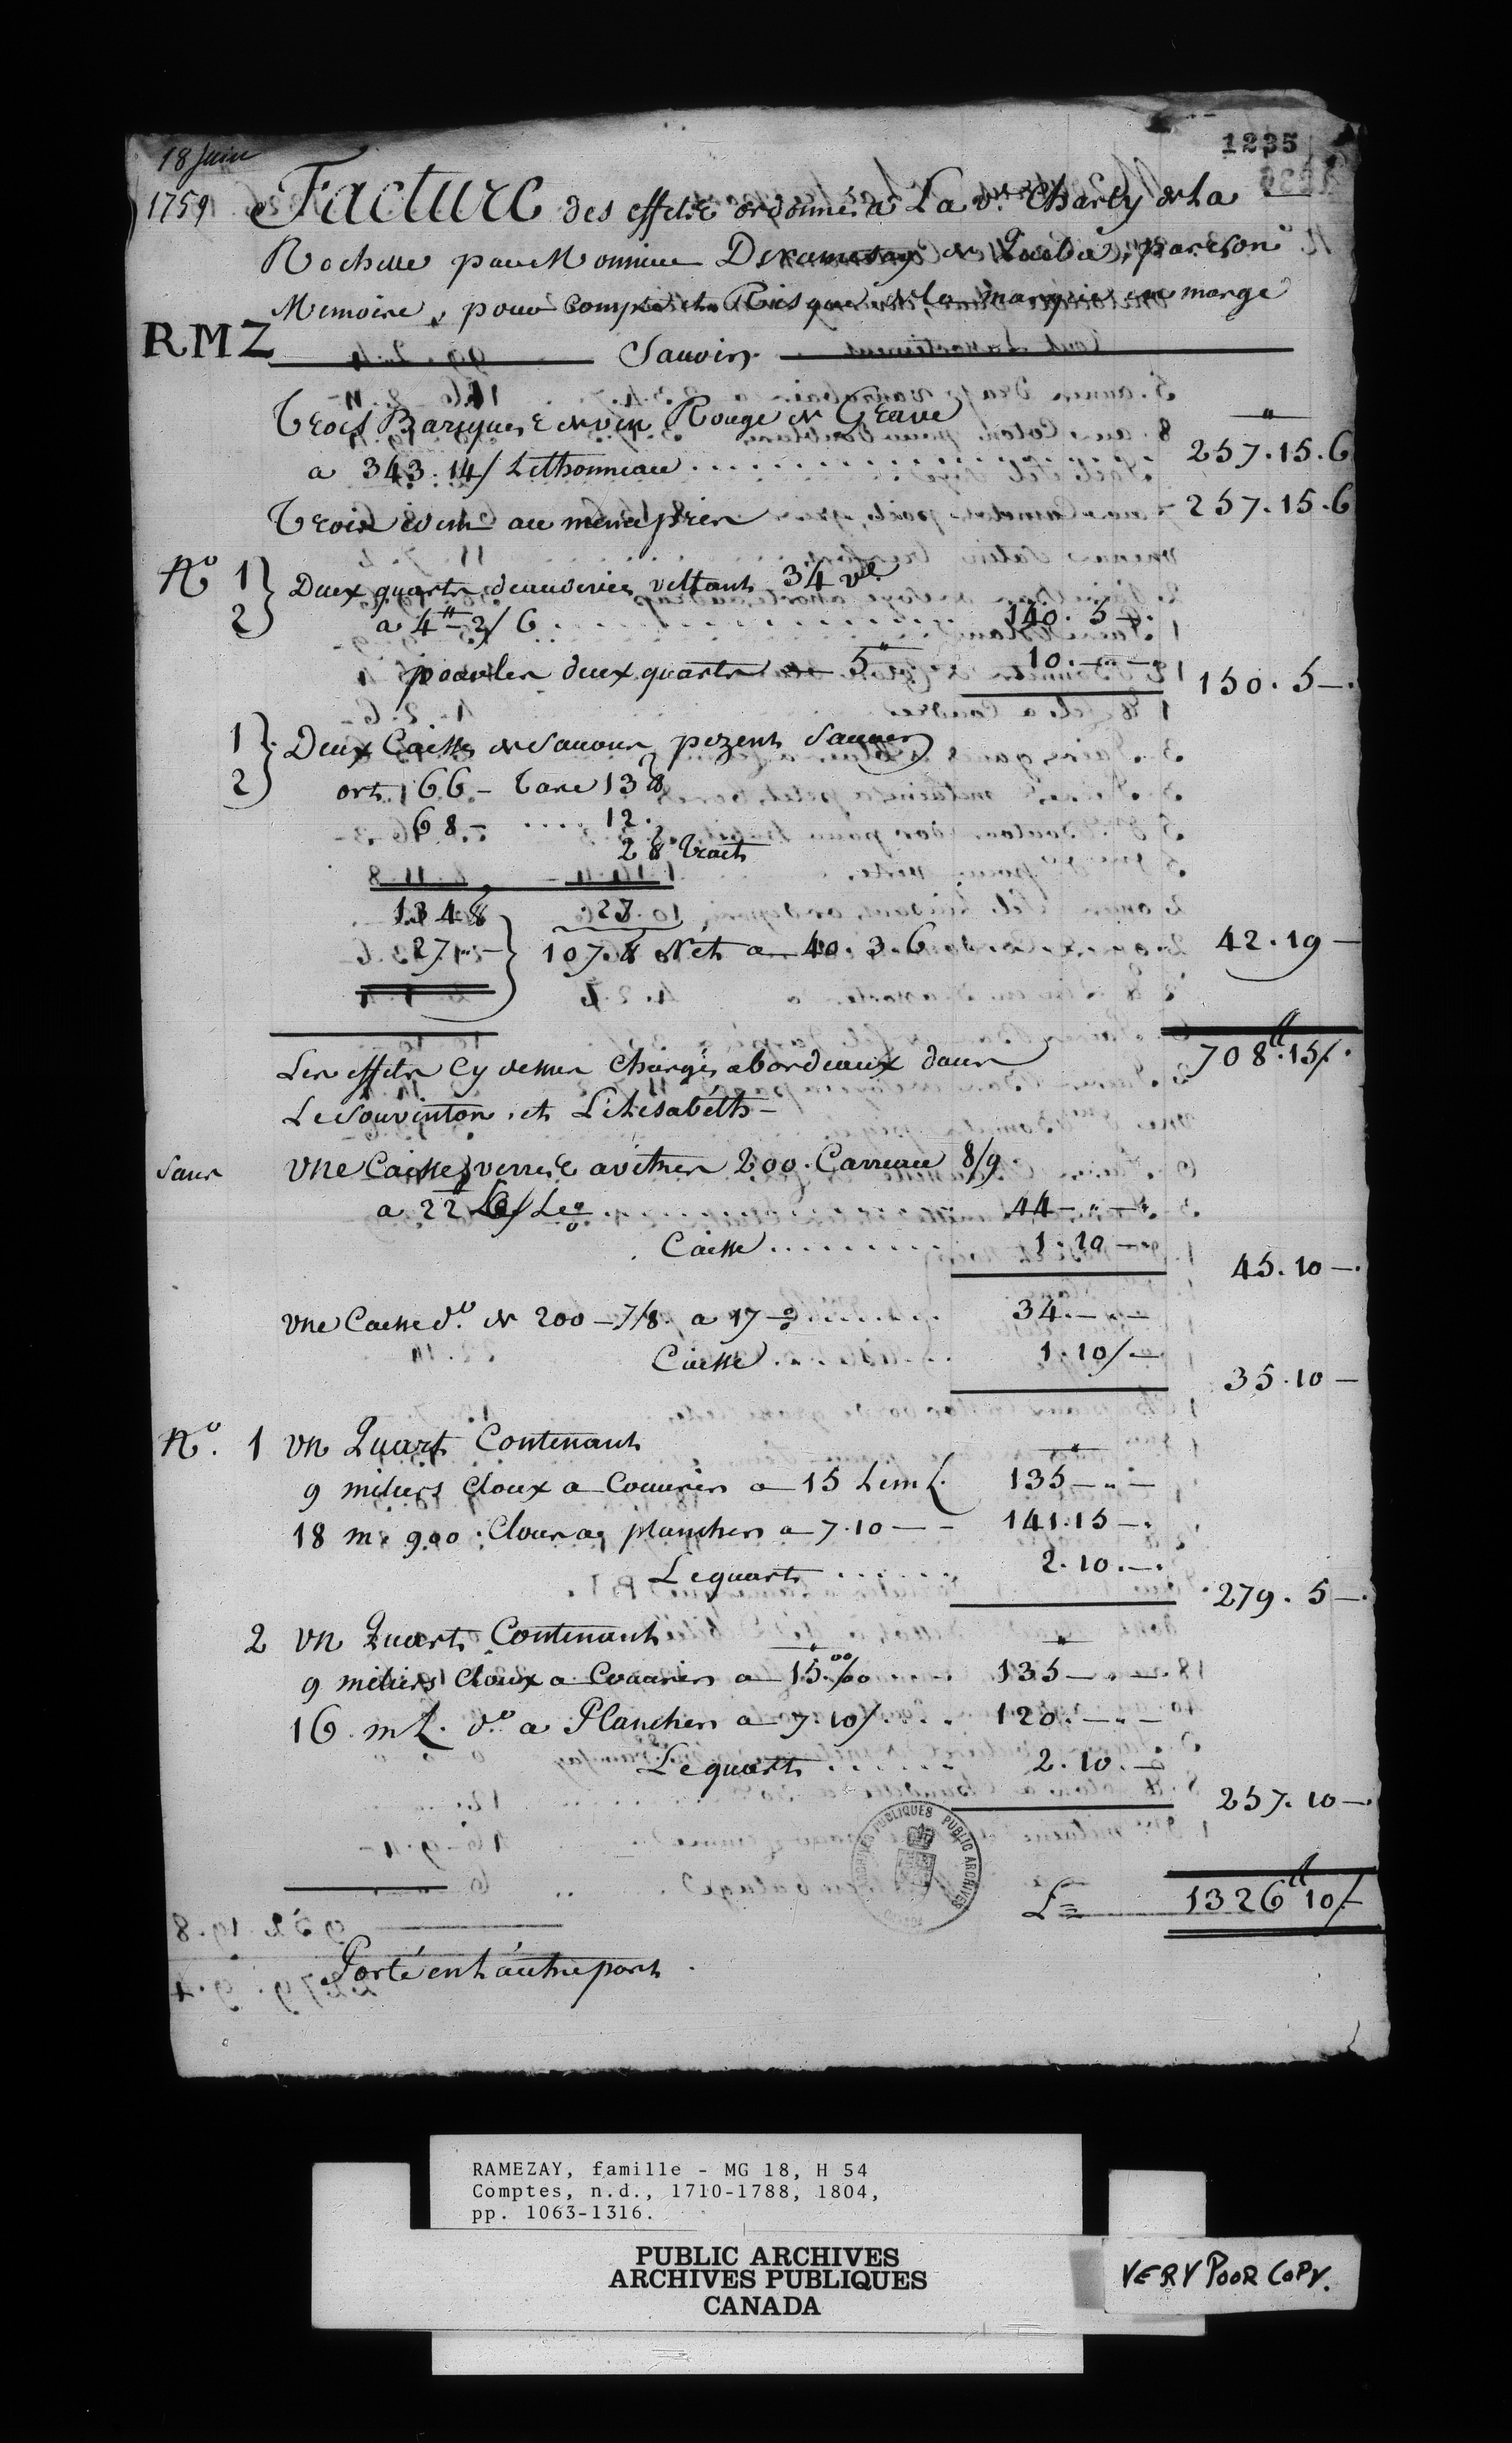 1235
18 Juin
1759 Facture des effets ordonnés a La ve. Charly de La
Rochelle par Monsieur Deramesay de Quebec, par son
Memoire, pour Compte et Risque de la marque en marge
RMZ
Savoir
Trois Bariques de vin Rouge de Grave
a 343.14/ Lethonneau . . . 257.15.6
Trois idem au meme prix 257.15.6
No 1 } Deux quarts deaudevie, veltant 34 ve.
2 } a 4tt 2/6 . . . 140.5—.
pour les deux quarts a 5tt 10.—"— 150.5—.
1 } Deux Caisses de Savon, pezent Savoir
2 } ort. 66 — Tare 13 ℔
68 — . . . . 12.
2 ℔ Trait
134 ℔ 27
27 — } 107 ℔ Net a 40.3.6 42.19—
708tt.15/.
Les effets Cy dessus Chargés a bordeaux dans
Le Souvinton, et L'Elesabeth —
Sans Une Caisse verres a vitres 200. Carreau 8/9
a 22tt Le % . . . 44—"—
Caisse . . . . . . . 1.10— 45.10—.
Une Caisse do. de 200 — 7/8. a 17 % . . . 34.—"—
Caisse . . . 1.10/— 35.10—
No. 1 Un Quart Contenant
9 miliers Cloux a Couvrir a 15 Le m L. 135—"—
18 m. 900. Cloux a plancher a 7.10 —— 141.15—.
Le quart . . . . . . 2.10.—. 279.5—.
2 Un Quart Contenant
9 miliers Cloux a Couvrir a 15.%00 135—"—
16 m L. do a Plancher a 7.10/. . . . 120.—"—
Le quart . . . . . . 2.10.— 257.10—.
L= 1326tt 10/—
Porté en L'autre part.
ARCHIVES PUBLIQUES PUBLIC ARCHIVES
CANADA
RAMEZAY, famille - MG 18, H 54
Comptes, n.d., 1710-1788, 1804,
pp. 1063-1316.
PUBLIC ARCHIVES
ARCHIVES PUBLIQUES
CANADA
VERY POOR COPY.